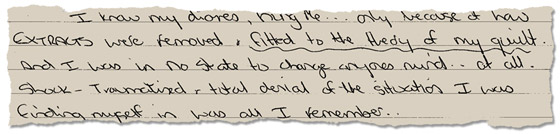 I know my diaries, hung me... only because of how
EXTRACTS were removed, fitted to the theory of my guilt.
And I was in no state to change anyones mind.. at all.
Shock - Traumatized - total denial of the situation I was
finding myself in was all I remember..